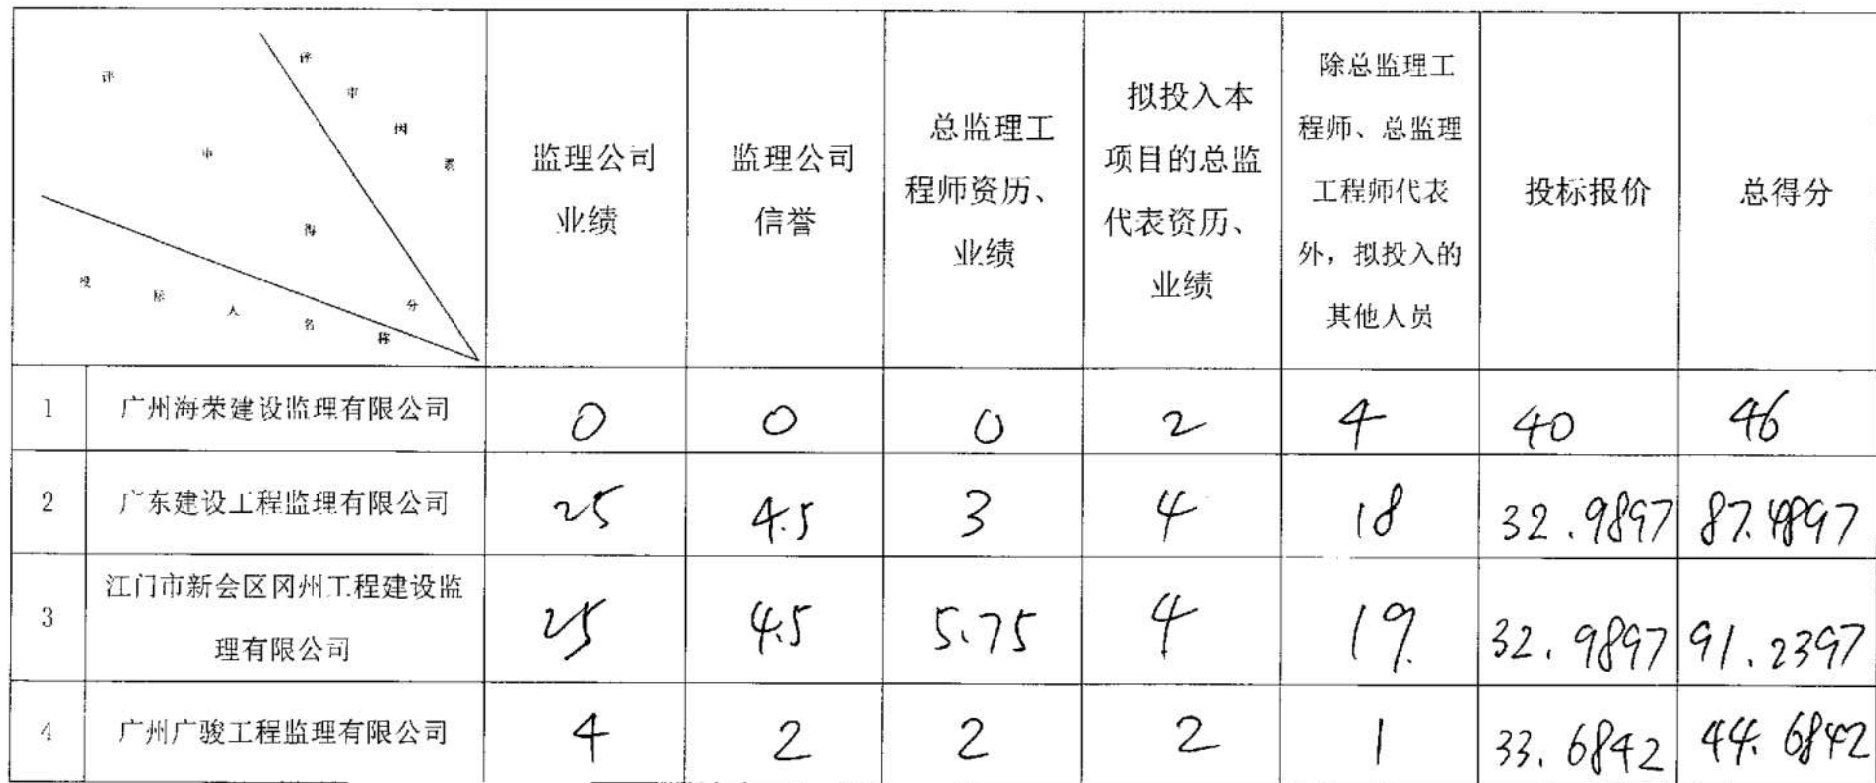 评审因素
评审得分
投标人名称
监理公司
业绩
监理公司
信誉
总监理工
程师资历、
业绩
拟投入本
项目的总监
代表资历、
业绩
除总监理工
程师、总监理
工程师代表
外，拟投入的
其他人员
投标报价
总得分
1 广州海荣建设监理有限公司 0 0 0 2 4 40 46
2 广东建设工程监理有限公司 25 4.5 3 4 18 32.9897 87.4897
3 江门市新会区冈州工程建设监
理有限公司 25 4.5 5.75 4 19. 32.9897 91.2397
4 广州广骏工程监理有限公司 4 2 2 2 1 33.6842 44.6842